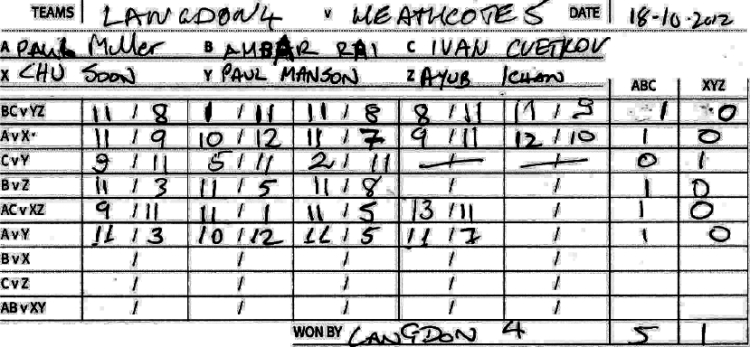 TEAMS LANGDON 4 v HEATHCOTES 5 DATE 18-10-2012
A PAUL Miller B AMBAR RAI C IVAN CVETKOV
X CHU SOON Y PAUL MANSON Z AYUB KHAN ABC XYZ
BCvYZ 11 / 8 1 / 11 11 / 8 8 / 11 11 / 9 1 0
AvX 11 / 9 10 / 12 11 / 7 9 / 11 12 / 10 1 0
CvY 9 / 11 5 / 11 2 / 11 / / 0 1
BvZ 11 / 3 11 / 5 11 / 8 / / 1 0
ACvXZ 9 / 11 11 / 1 11 / 5 13 / 11 / 1 0
AvY 11 / 3 10 / 12 11 / 5 11 / 7 / 1 0
BvX / / / / /
CvZ / / / / /
ABvXY / / / / /
WON BY LANGDON 4 5 1